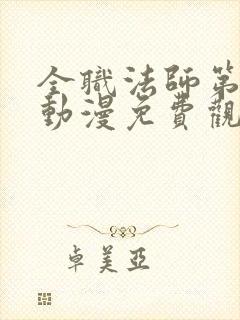 全職法師第
動漫免費觀
卓美亞